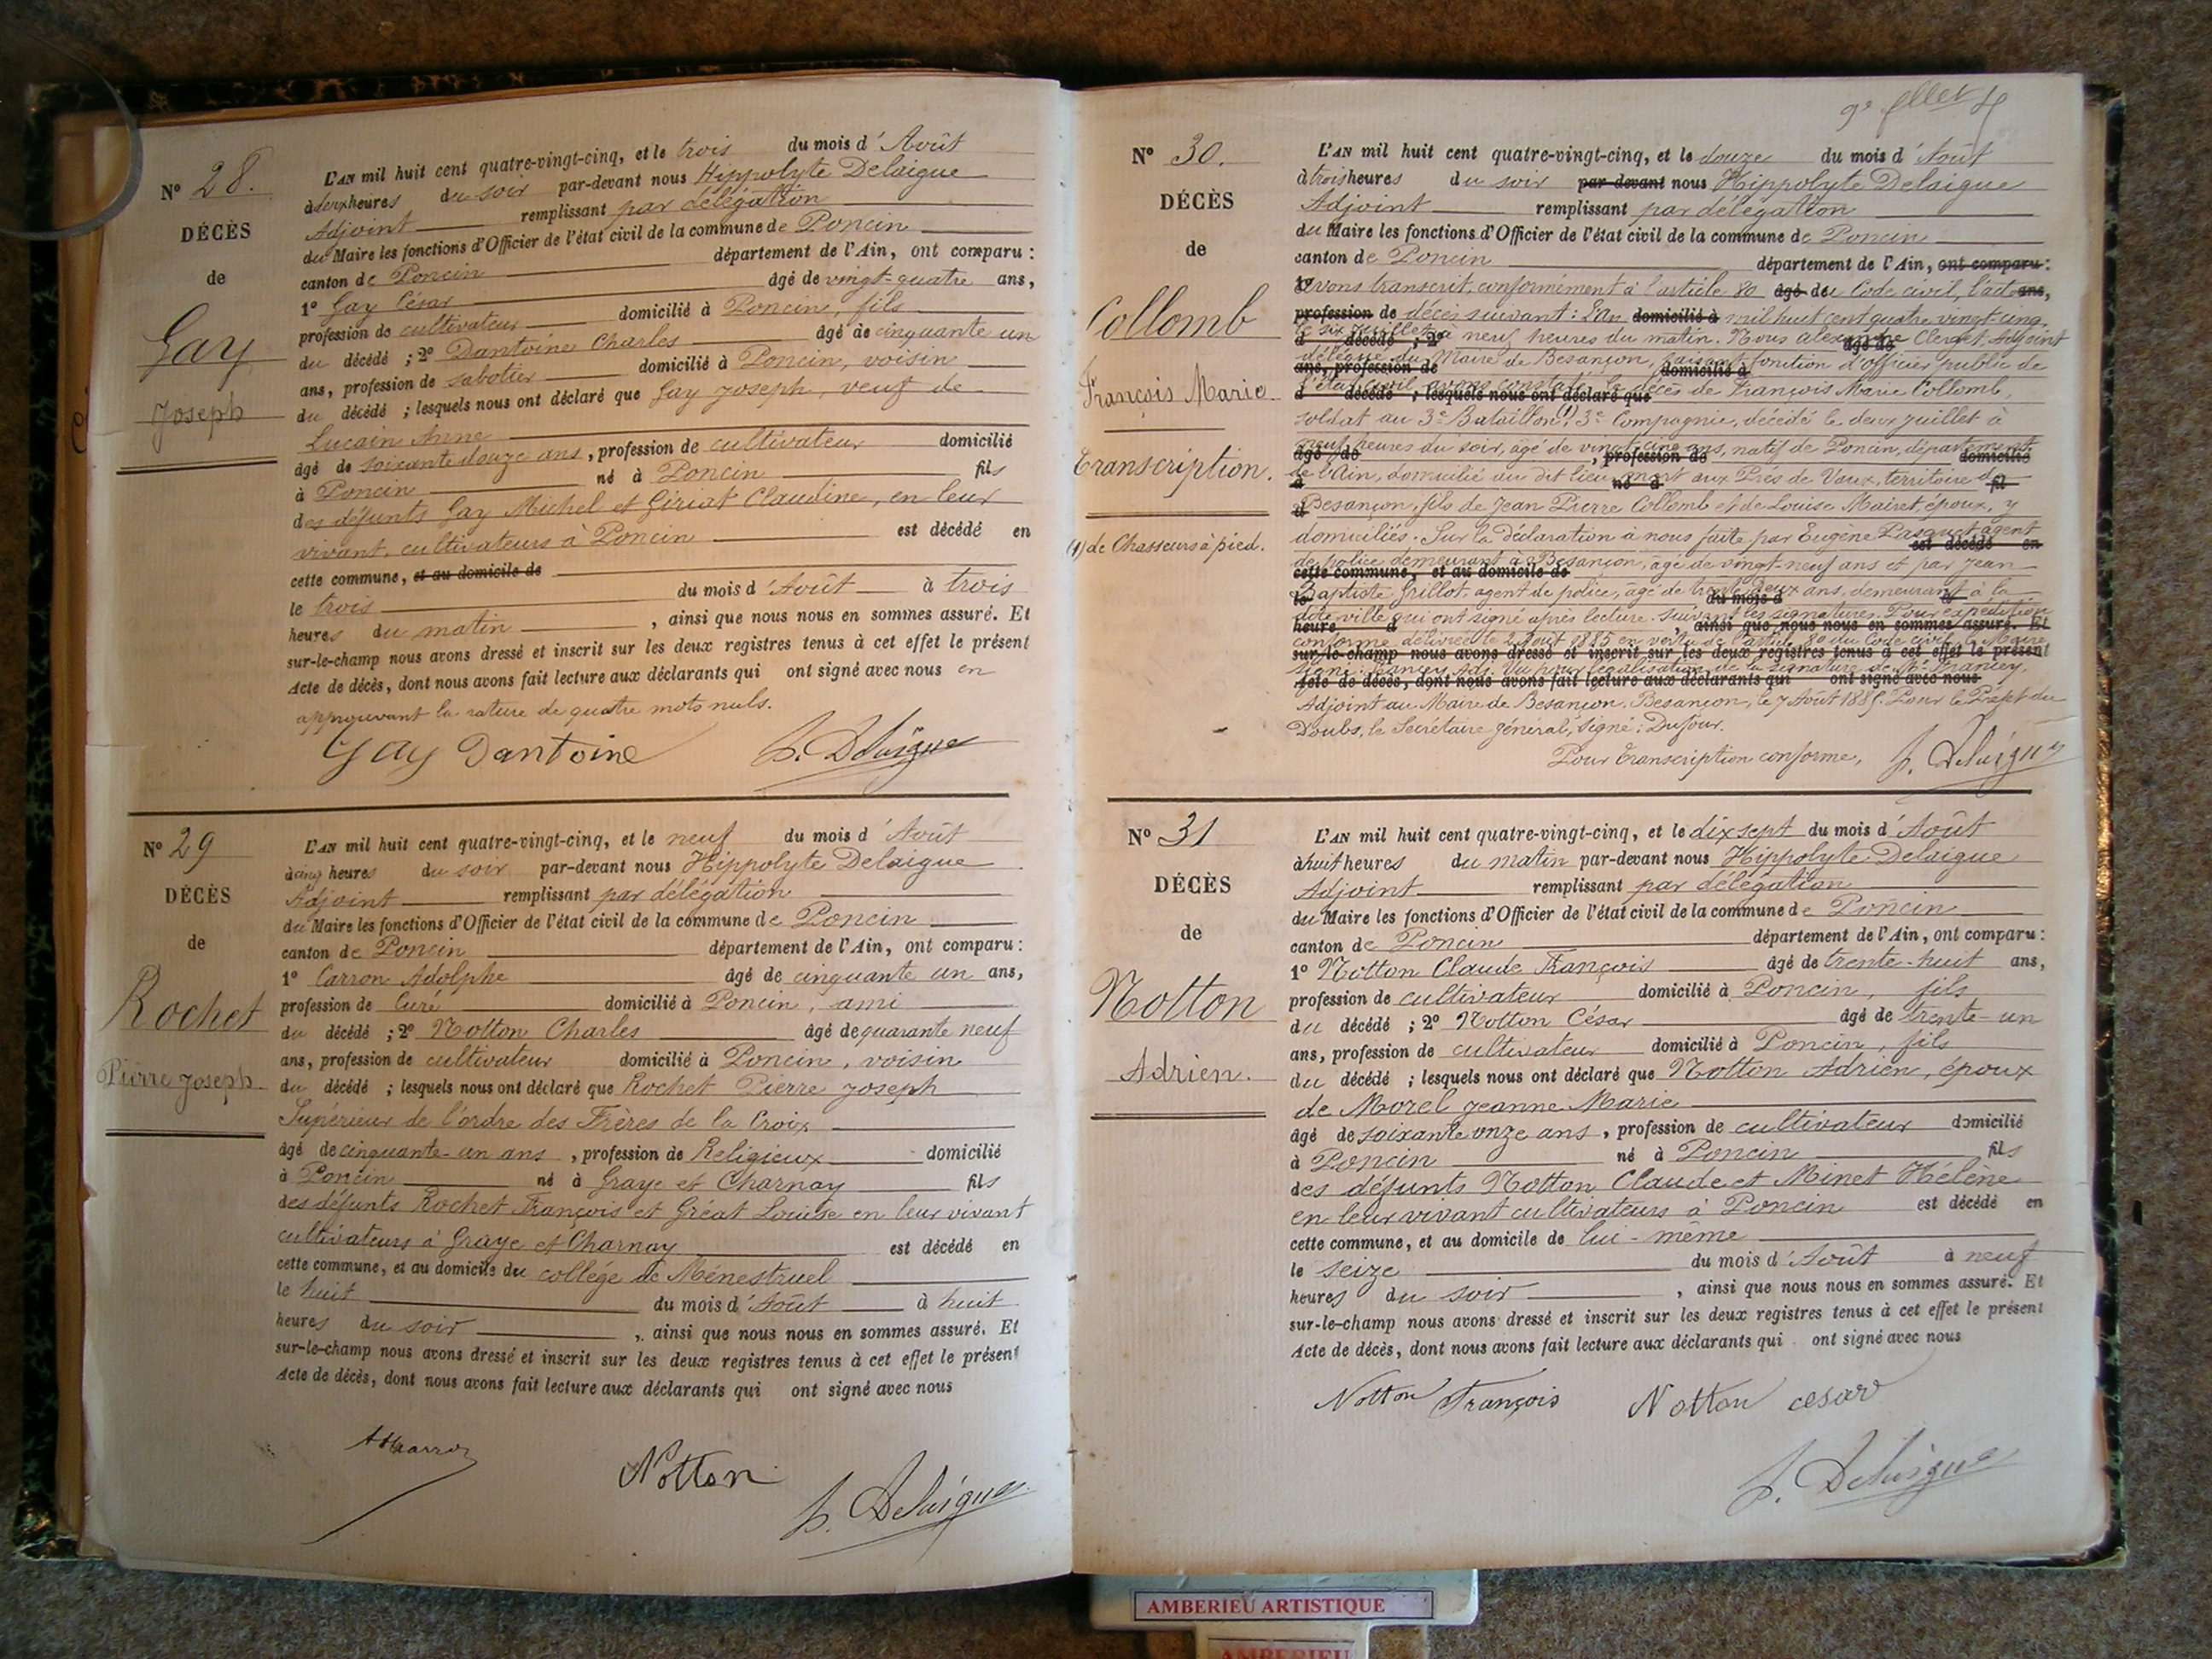 N° 28.
DÉCÈS
de
Gay
Joseph
L'AN mil huit cent quatre-vingt-cinq, et le trois du mois d'Août
à deux heures du soir par-devant nous Hippolyte Delaigue
Adjoint remplissant par délégation
du Maire les fonctions d'Officier de l'état civil de la commune de Poncin
canton de Poncin département de l'Ain, ont comparu :
1° Gay César âgé de vingt-quatre ans,
profession de cultivateur domicilié à Poncin, fils
du décédé ; 2° Dantoine Charles âgé de cinquante un
ans, profession de sabotier domicilié à Poncin, voisin
du décédé ; lesquels nous ont déclaré que Gay Joseph, veuf de
Lucain Anne
âgé de soixante douze ans, profession de cultivateur domicilié
à Poncin né à Poncin fils
des défunts Gay Michel et Giriat Claudine, en leur
vivant, cultivateurs à Poncin est décédé en
cette commune, et au domicile de
le trois du mois d'Août à trois
heures du matin, ainsi que nous nous en sommes assuré. Et
sur-le-champ nous avons dressé et inscrit sur les deux registres tenus à cet effet le présent
Acte de décès, dont nous avons fait lecture aux déclarants qui ont signé avec nous en
approuvant la rature de quatre mots nuls.
Gay Dantoine h. Delaigue
N° 29
DÉCÈS
de
Rochet
Pierre Joseph
L'AN mil huit cent quatre-vingt-cinq, et le neuf du mois d'Août
à cinq heures du soir par-devant nous Hippolyte Delaigue
Adjoint remplissant par délégation
du Maire les fonctions d'Officier de l'état civil de la commune de Poncin
canton de Poncin département de l'Ain, ont comparu :
1° Carron Adolphe âgé de cinquante un ans,
profession de Curé domicilié à Poncin, ami
du décédé ; 2° Notton Charles âgé de quarante neuf
ans, profession de cultivateur domicilié à Poncin, voisin
du décédé ; lesquels nous ont déclaré que Rochet Pierre Joseph
Supérieur de l'ordre des Frères de la Croix
âgé de cinquante-un ans, profession de Religieux domicilié
à Poncin né à Graye et Charnay fils
des défunts Rochet François et Gréat Louise en leur vivant
cultivateurs à Graye et Charnay est décédé en
cette commune, et au domicile du collège de Ménestruel
le huit du mois d'Août à huit
heures du soir, ainsi que nous nous en sommes assuré. Et
sur-le-champ nous avons dressé et inscrit sur les deux registres tenus à cet effet le présent
Acte de décès, dont nous avons fait lecture aux déclarants qui ont signé avec nous
Notton
h. Delaigue
N° 30.
DÉCÈS
de
Collomb
François Marie
Transcription.
(1) de Chasseurs à pied.
L'AN mil huit cent quatre-vingt-cinq, et le douze du mois d'Août
à trois heures du soir par-devant nous Hippolyte Delaigue
Adjoint remplissant par délégation
du Maire les fonctions d'Officier de l'état civil de la commune de Poncin
canton de Poncin département de l'Ain, ont comparu :
avons transcrit, conformément à l'article 80 âgé du Code civil, l'acte ans,
profession de décès suivant : L'an domicilié à mil huit cent quatre vingt cinq
le six Juillet à neuf heures du matin. Nous Alexandre Clerget, Adjoint
délégué du Maire de Besançon, faisant fonction d'officier public de
l'état civil, avons constaté le décès de François Marie Collomb,
soldat au 3e Bataillon (1) 3e Compagnie, décédé le deux juillet à
neuf heures du soir, âgé de vingt-cinq ans, natif de Poncin, département
de l'Ain, domicilié au dit lieu, mort aux Prés de Vaux, territoire de
Besançon, fils de Jean Pierre Collomb et de Louise Mairet, époux, y
domiciliés. Sur la déclaration à nous faite par Eugène Pasquet, agent
de police demeurant à Besançon, âgé de vingt-neuf ans et par Jean
Baptiste Grillot, agent de police, âgé de trente deux ans, demeurant à la
dite ville qui ont signé après lecture. Suivent les signatures. Pour expédition
conforme, délivrée le 2 Août 1885 en vertu de l'article 80 du Code civil, le Maire
signé: Francey, Adj. Vu pour légalisation de la signature de Mr Francey,
Adjoint au Maire de Besançon. Besançon, le 7 Août 1885. Pour le Préfet du
Doubs, le Secrétaire général, signé: Dufour.
Pour Transcription conforme, h. Delaigue
N° 31
DÉCÈS
de
Notton
Adrien.
L'AN mil huit cent quatre-vingt-cinq, et le dix sept du mois d'Août
à huit heures du matin par-devant nous Hippolyte Delaigue
Adjoint remplissant par délégation
du Maire les fonctions d'Officier de l'état civil de la commune de Poncin
canton de Poncin département de l'Ain, ont comparu :
1° Notton Claude François âgé de trente-huit ans,
profession de cultivateur domicilié à Poncin, fils
du décédé ; 2° Notton César âgé de trente-un
ans, profession de cultivateur domicilié à Poncin, fils
du décédé ; lesquels nous ont déclaré que Notton Adrien, époux
de Morel Jeanne Marie
âgé de soixante onze ans, profession de cultivateur domicilié
à Poncin né à Poncin fils
des défunts Notton Claude et Minet Hélène
en leur vivant cultivateurs à Poncin est décédé en
cette commune, et au domicile de lui-même
le seize du mois d'Août à neuf
heures du soir, ainsi que nous nous en sommes assuré. Et
sur-le-champ nous avons dressé et inscrit sur les deux registres tenus à cet effet le présent
Acte de décès, dont nous avons fait lecture aux déclarants qui ont signé avec nous
Notton François Notton cesar
h. Delaigue
AMBERIEU ARTISTIQUE
AMBERIEU